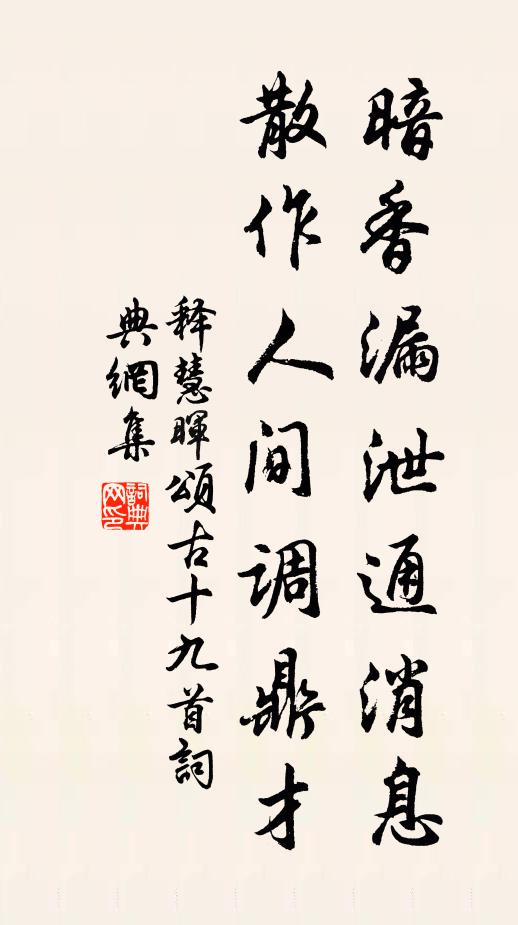 暗香漏泄通消息
散作人间调鼎才
释慧暉頌古十九首詞
典網集
詞典网印